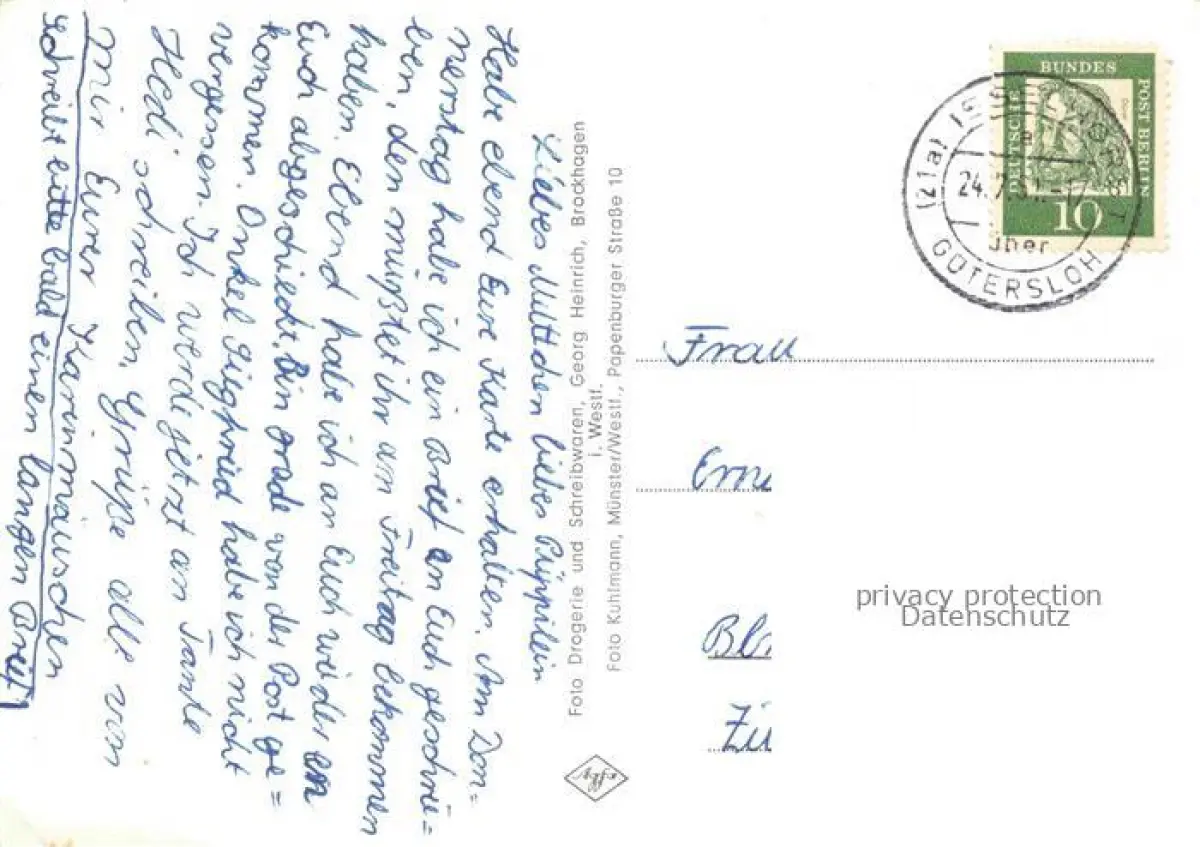 Liebes Muttchen liebes Püppilein
Habe ebend Eure Karte erhalten. Am Don=
nerstag habe ich ein Brief an Euch geschrie=
ben, den müßtet ihr am Freitag bekommen
haben. Ebend habe ich an Euch wieder ein
Euch abgeschickt. Bin grade von der Post ge=
kommen. Onkel Siegfried habe ich nicht
vergessen. Ich werde jetzt an Tante
Hedi schreiben. Grüße alle von
mir Eurer Karinmäuschen
Schreibt bitte bald einen langen Brief
Foto Drogerie und Schreibwaren, Georg Heinrich, Brockhagen
i. Westf.
Foto Kuhlmann, Münster/Westf., Papenburger Straße 10
DEUTSCHE
BUNDES
POST BERLIN
10
(21a)
24.7.
über
GÜTERSLOH
Frau
privacy protection
Datenschutz